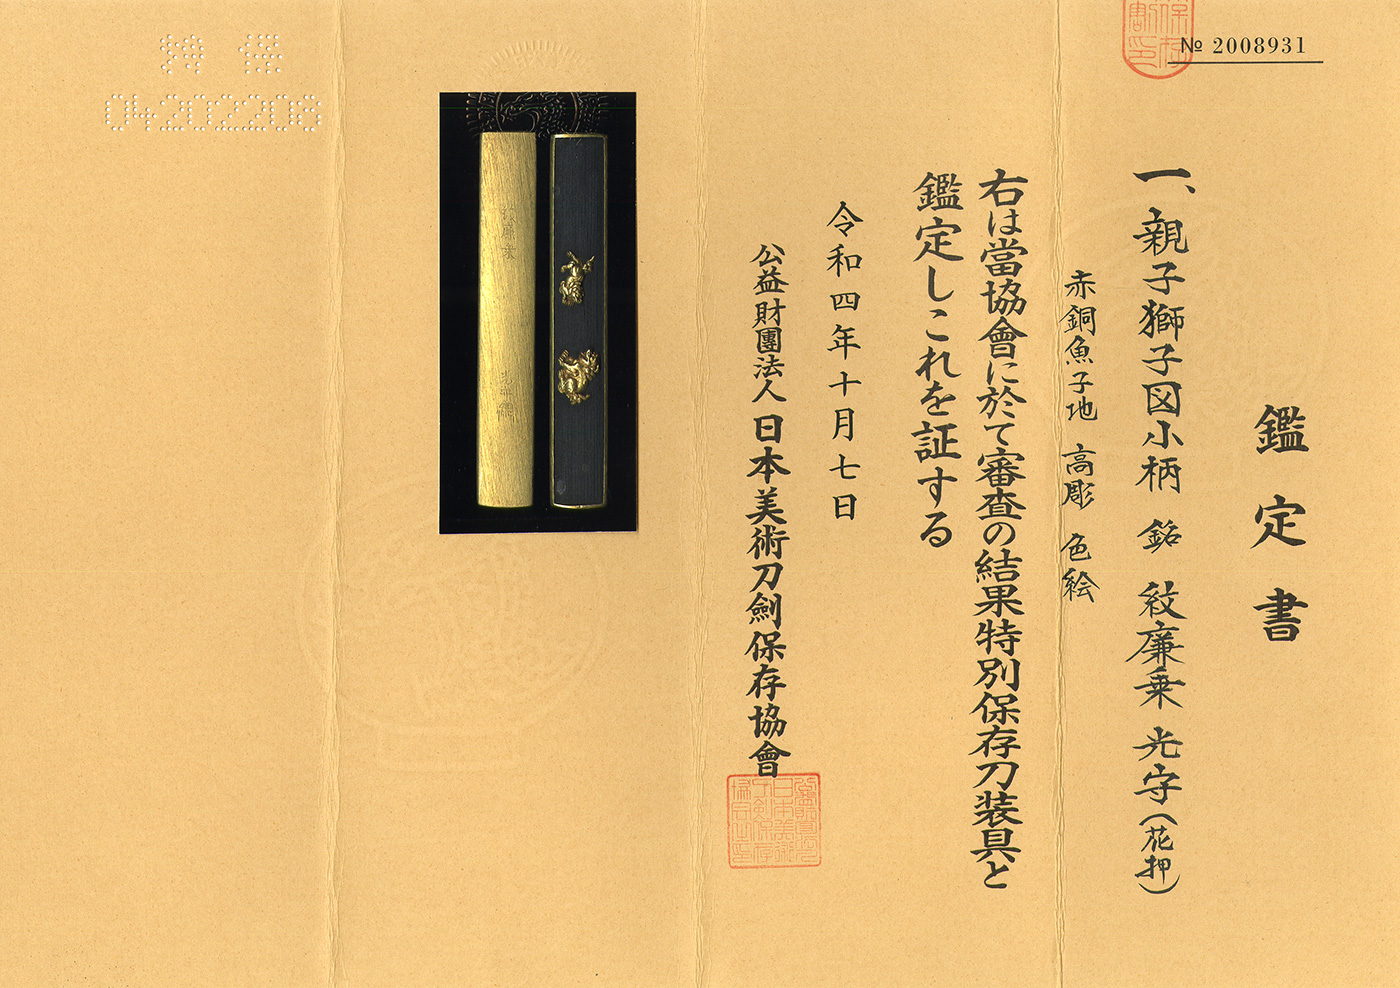 № 2008931
鑑定書
一、親子獅子図小柄 銘 紋廉乗 光守(花押)
赤銅魚子地 高彫 色絵
右は當協會に於て審査の結果特別保存刀装具と
鑑定しこれを証する
令和四年十月七日
公益財團法人 日本美術刀劍保存協會
04202208